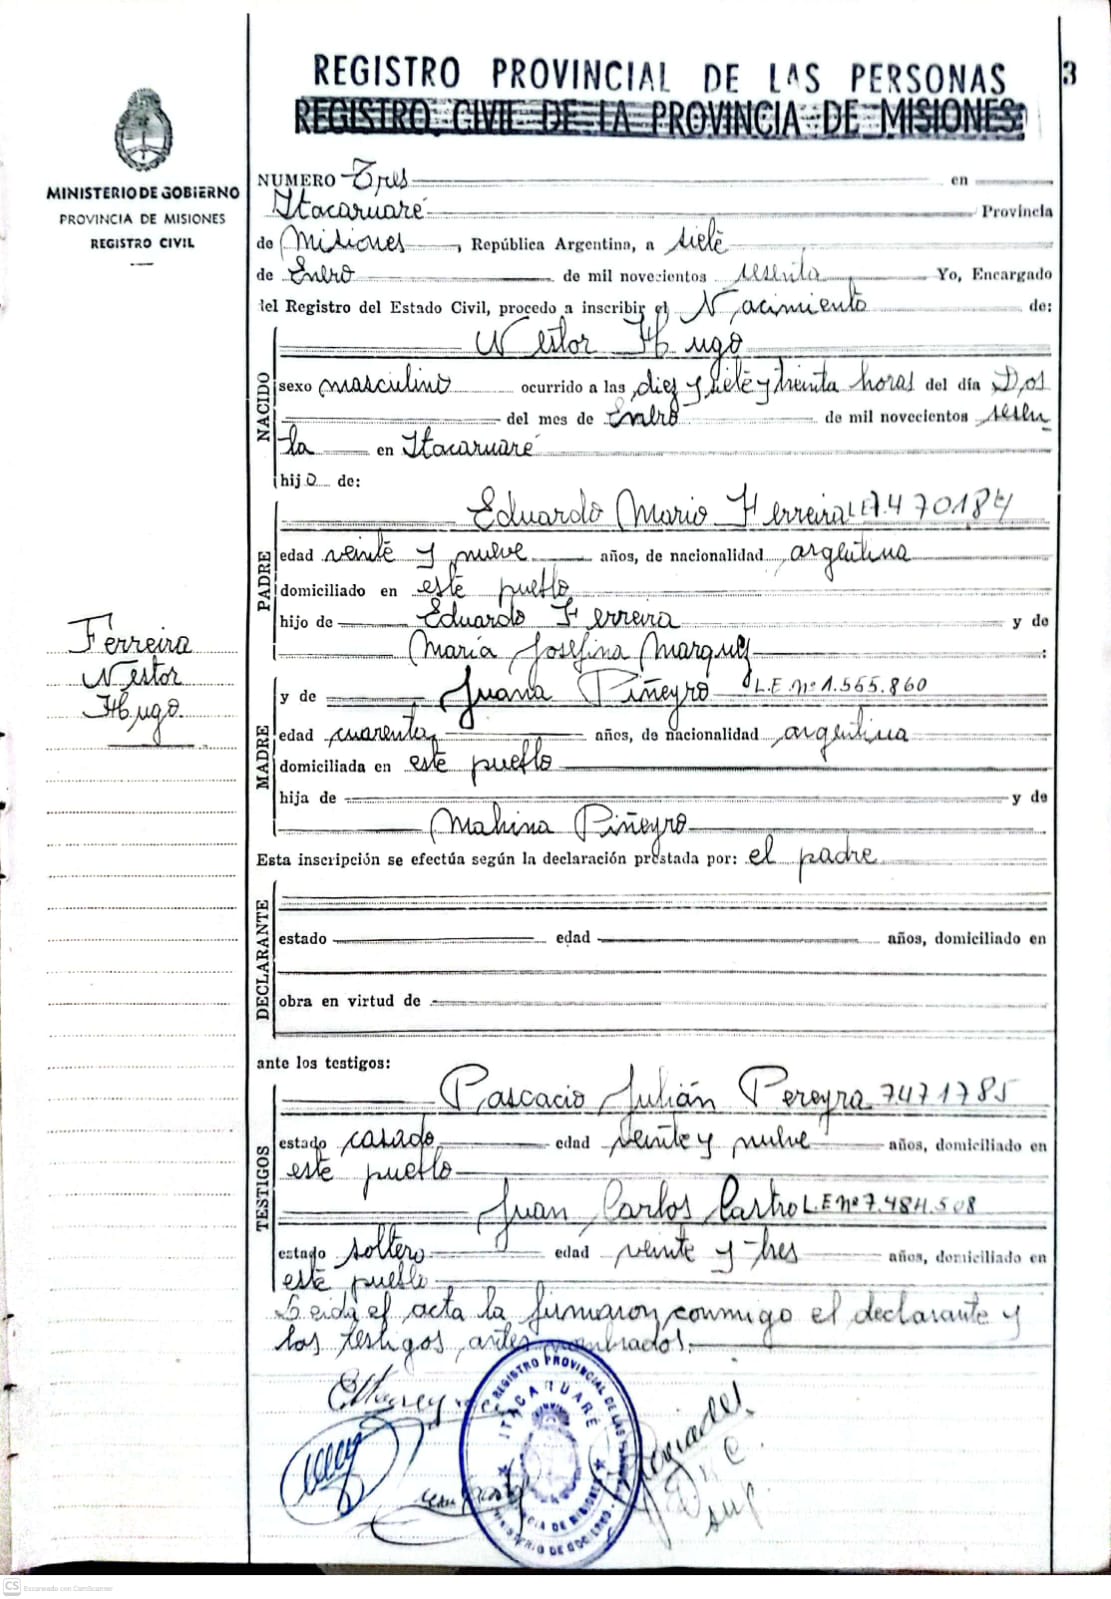 REGISTRO PROVINCIAL DE LAS PERSONAS
3
REGISTRO CIVIL DE LA PROVINCIA DE MISIONES
MINISTERIO DE GOBIERNO
PROVINCIA DE MISIONES
REGISTRO CIVIL
NUMERO Tres en
Itacaruaré Provincia
de Misiones, República Argentina, a siete
de Enero de mil novecientos sesenta Yo, Encargado
del Registro del Estado Civil, procedo a inscribir el Nacimiento de:
NACIDO
Nestor Hugo
sexo masculino ocurrido a las diez y siete y treinta horas del día Dos
del mes de Enero de mil novecientos sesen
ta en Itacaruaré
hijo de:
PADRE
Eduardo Mario Ferreira L.E. 7.470184
edad veinte y nueve años, de nacionalidad argentina
domiciliado en este pueblo
hijo de Eduardo Ferreira y de
María Josefina Marquez :
Ferreira
Nestor
Hugo.
MADRE
y de Juana Piñeyro L.E. Nº 1.565.860
edad cuarenta años, de nacionalidad argentina
domiciliada en este pueblo
hija de y de
Piñeyro
Esta inscripción se efectúa según la declaración prestada por: el padre
DECLARANTE
estado edad años, domiciliado en
obra en virtud de
ante los testigos:
TESTIGOS
Pascacio Julián Pereyra 7471785
estado casado edad veinte y nueve años, domiciliado en
este pueblo
Juan Carlos Castro L.E Nº 7.484.508
estado soltero edad veinte y tres años, domiciliado en
este pueblo
Leida el acta la firmaron conmigo el declarante y
los testigos antes nombrados.
REGISTRO PROVINCIAL DE LAS PERSONAS
ITACARUARÉ
PROVINCIA DE MISIONES
MINISTERIO DE GOBIERNO
CS Escaneado con CamScanner